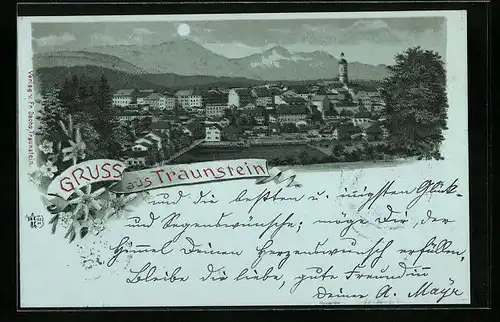 Verlag v. Fr. Sachs, Traunstein.
GRUSS aus TRAUNSTEIN
und die besten u. innigsten Glück-
und Segenswünsche; möge Dir, der
Himmel Deinen Herzenswunsch erfüllen,
Bleibe die liebe, gute Freundin
Deiner A. Mayr